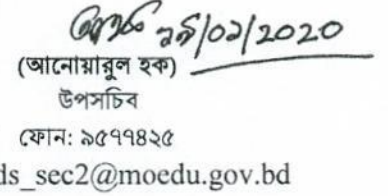 ২৯/০১/২০২০
(আনোয়ারুল হক)
উপসচিব
ফোন: ৯৫৭৭৪২৫
ds_sec2@moedu.gov.bd